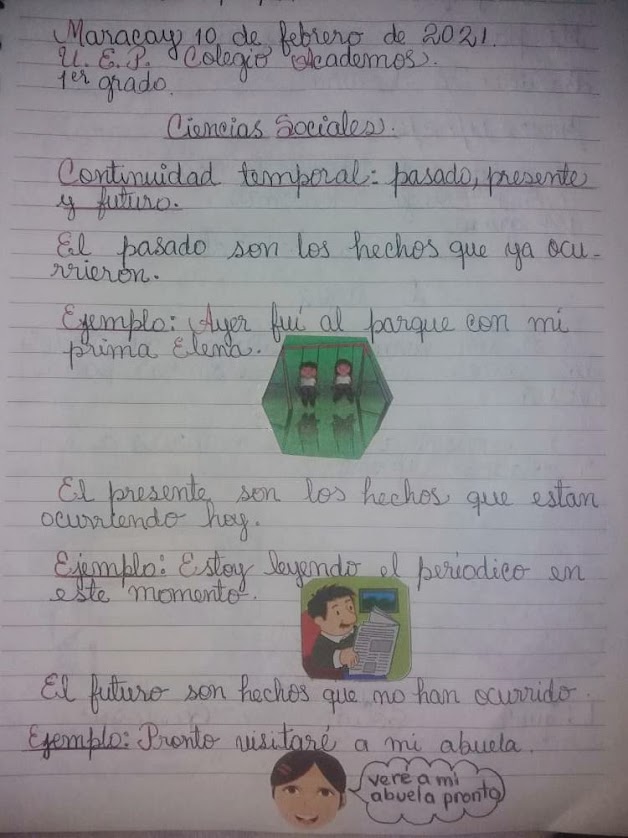 Maracay 10 de febrero de 2021.
U. E. P. Colegio Academos.
1er grado.
Ciencias Sociales.
Continuidad temporal: pasado, presente
y futuro.
El pasado son los hechos que ya ocu-
rrieron.
Ejemplo: Ayer fuí al parque con mi
prima Elena.
El presente son los hechos que estan
ocurriendo hoy.
Ejemplo: Estoy leyendo el períodico en
este momento.
El futuro son hechos que no han ocurrido.
Ejemplo: Pronto visitaré a mi abuela.
vere a mi
abuela pronto